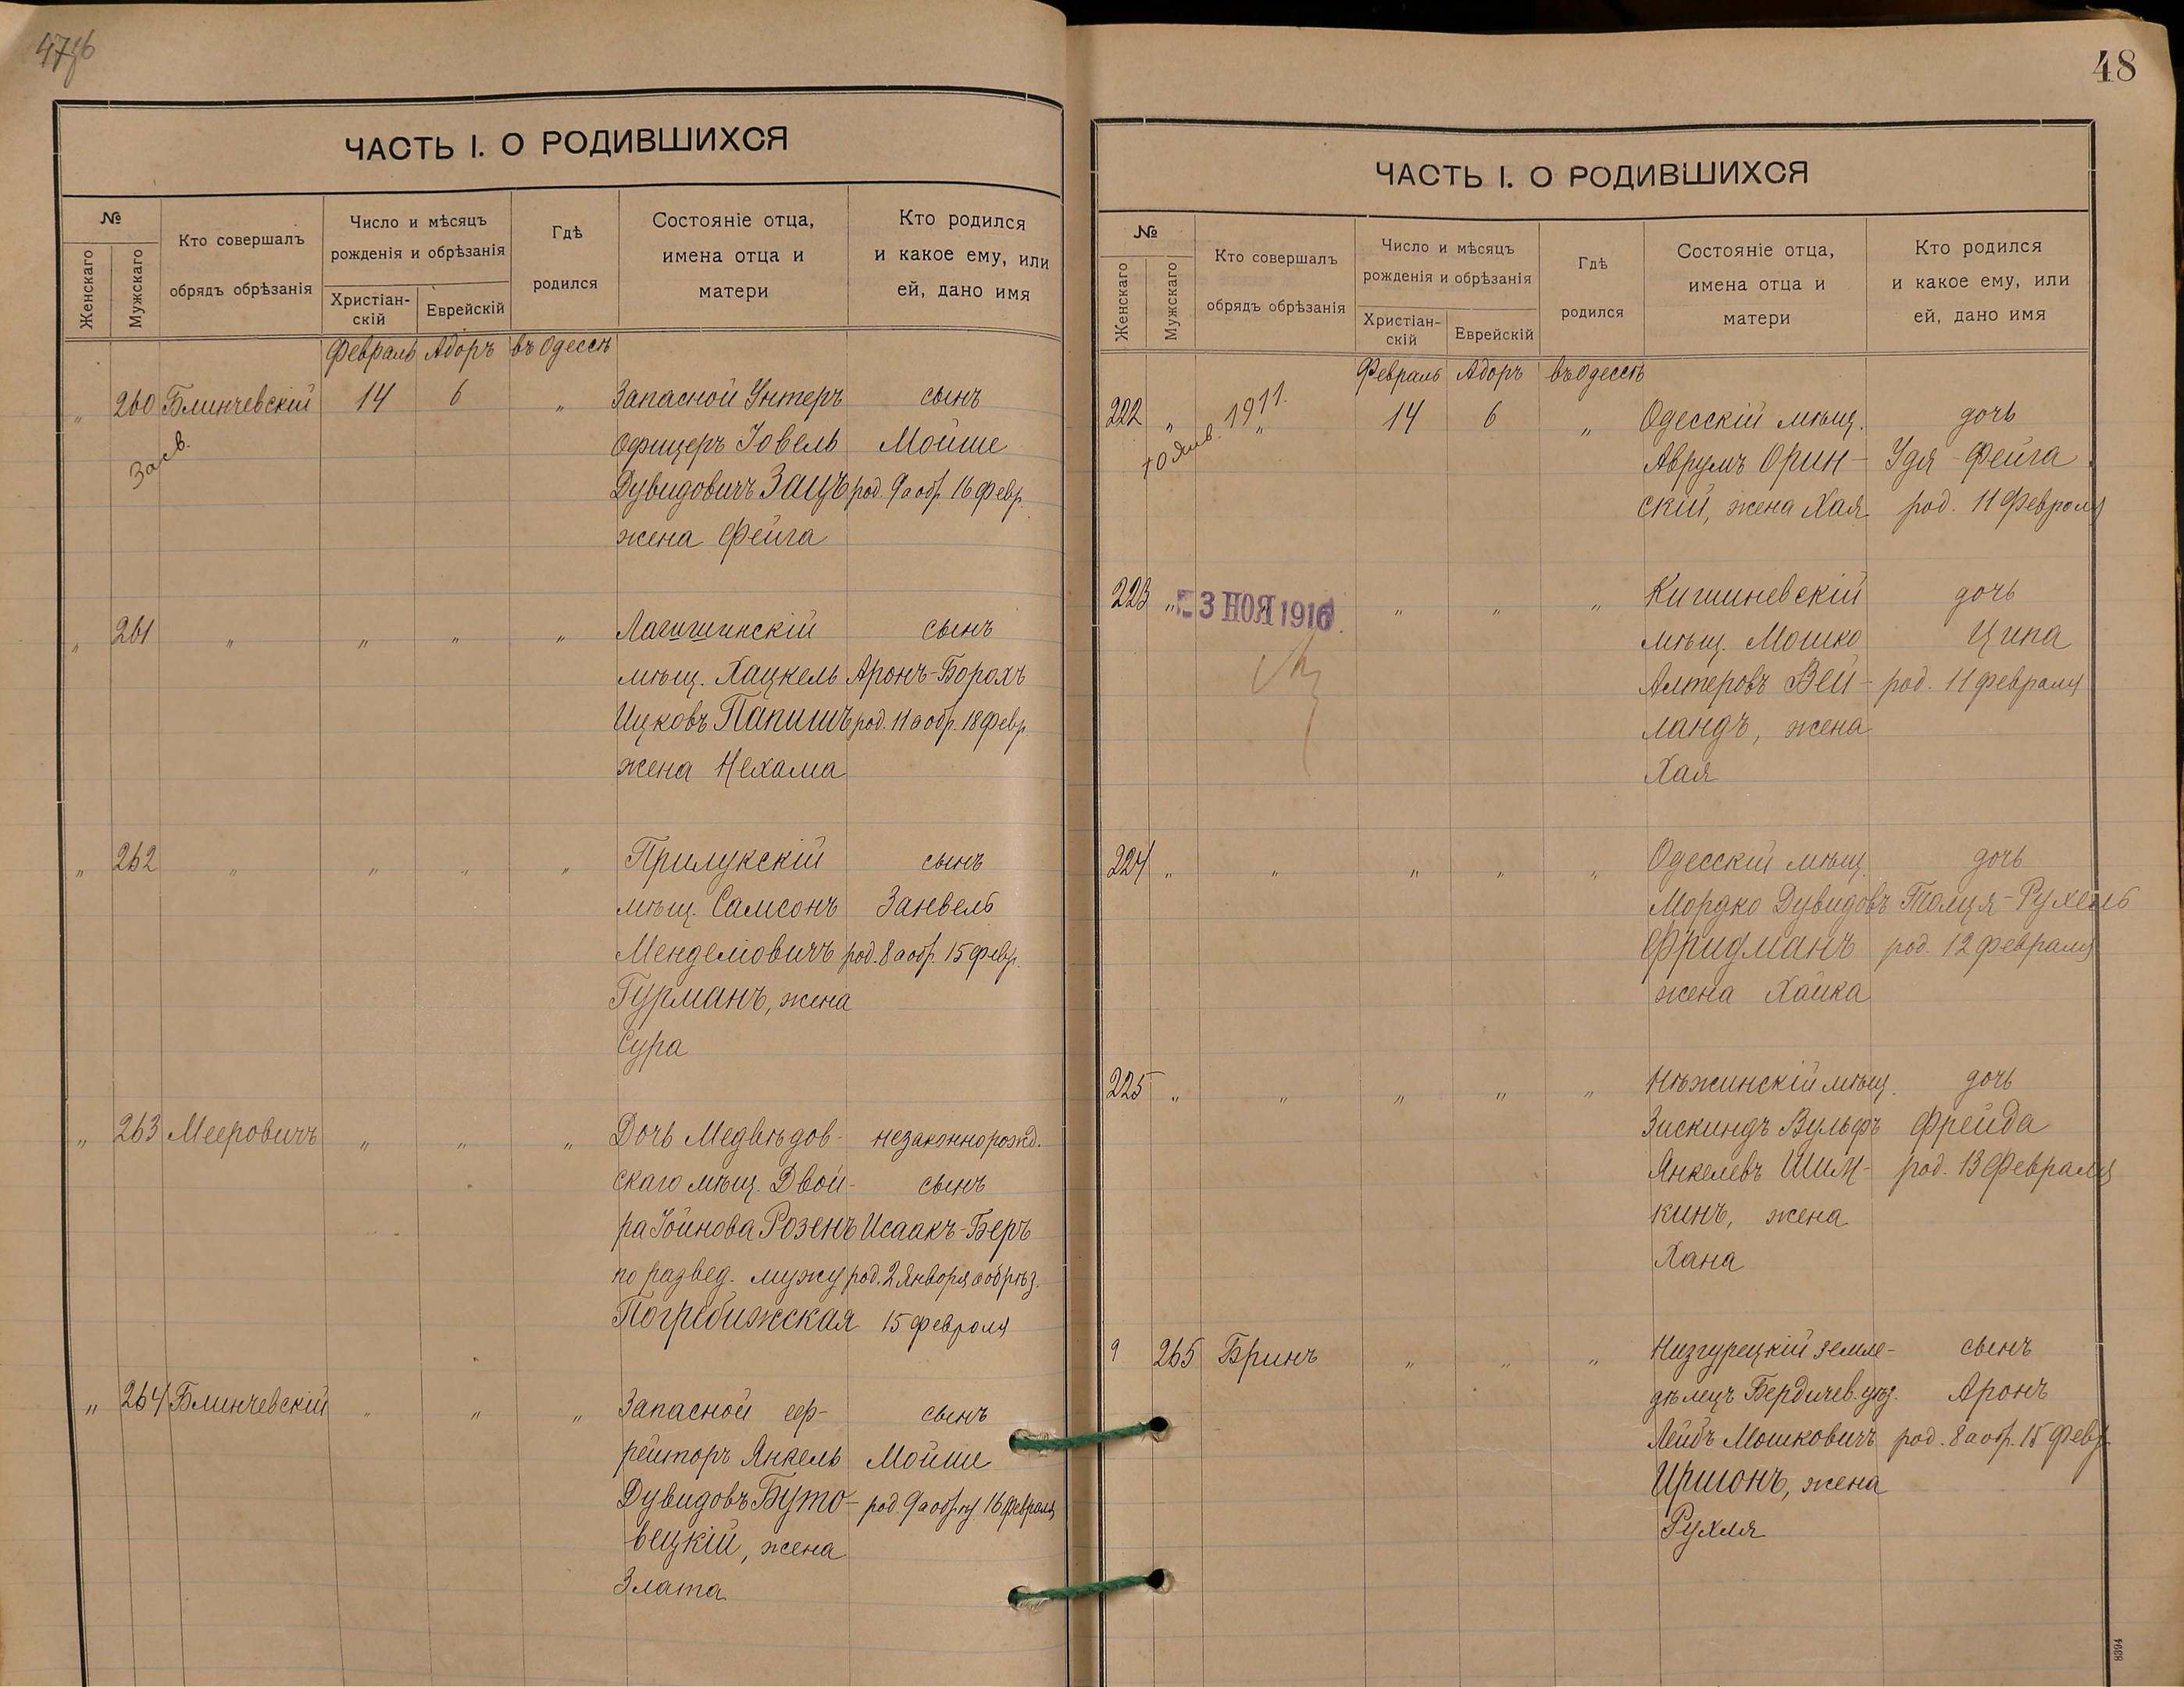 ЧАСТЬ I. О РОДИВШИХСЯ
№
Женскаго
Мужскаго
Кто совершалъ
обрядъ обрѣзанія
Число и мѣсяцъ
рожденія и обрѣзанія
Христіан-
скій
Еврейскій
Гдѣ
родился
Состояніе отца,
имена отца и
матери
Кто родился
и какое ему, или
ей, дано имя
Февраль Адоръ въ Одессѣ
„ 260 Блинчевскій 14 6 „ Запасной Унтеръ сынъ
Офицеръ Іовель Мойше
Дувидовичъ Зацъ род. 9 а обр. 16 Февр.
жена Фейга
„ 261 „ „ „ „ Лагишинскій сынъ
мѣщ. Хацкель Аронъ-Борохъ
Ицковъ Папишъ род. 11 а обр. 18 Февр.
жена Нехама
„ 262 „ „ „ „ Прилукскій сынъ
мѣщ. Самсонъ Занвель
Менделіовичъ род. 8 а обр. 15 Февр.
Гурманъ, жена
Сура
„ 263 Мееровичъ „ „ „ Дочь Медвѣдов- незаконнорожд.
скаго мѣщ. Двой- сынъ
ра Іойнова Розенъ Исаакъ-Беръ
по развед. мужу род. 2 Января а обрѣз.
Погребижская 15 февраля
„ 264 Блинчевскій „ „ „ Запасной еф- сынъ
рейторъ Янкель Мойше
Дувидовъ Буто- род. 9 а обр. 16 февраля
вецкій, жена
Злата
48
ЧАСТЬ I. О РОДИВШИХСЯ
№
Женскаго
Мужскаго
Кто совершалъ
обрядъ обрѣзанія
Число и мѣсяцъ
рожденія и обрѣзанія
Христіан-
скій
Еврейскій
Гдѣ
родился
Состояніе отца,
имена отца и
матери
Кто родился
и какое ему, или
ей, дано имя
Февраль Адоръ въ Одессѣ
222 „ „ 14 6 „ Одесскій мѣщ. дочь
10 Янв. 1911.
Аврумъ Орин- Удя-Фейга
скій, жена Хая род. 11 Февраля
223 „ „ „ „ Кишиневскій дочь
3 НОЯ 1916
мѣщ. Мошко Ципа
Алтеровъ Вей- род. 11 февраля
ландъ, жена
Хая
224 „ „ „ „ „ Одесскій мѣщ. дочь
Мордко Дувидовъ Толця-Рухель
Фридманъ род. 12 февраля
жена Хайка
225 „ „ „ „ „ Нѣжинскій мѣщ. дочь
Зискиндъ Вульфъ Фрейда
Янкелевъ Шим- род. 13 Февраля
кинъ, жена
Хана
„ 265 Бринъ „ „ „ Низгурецкій земле- сынъ
дѣлецъ Бердичев. уѣз. Аронъ
Лейбъ Мошковичъ род. 8 а обр. 15 Февр.
Иршонъ, жена
Рухля
8394